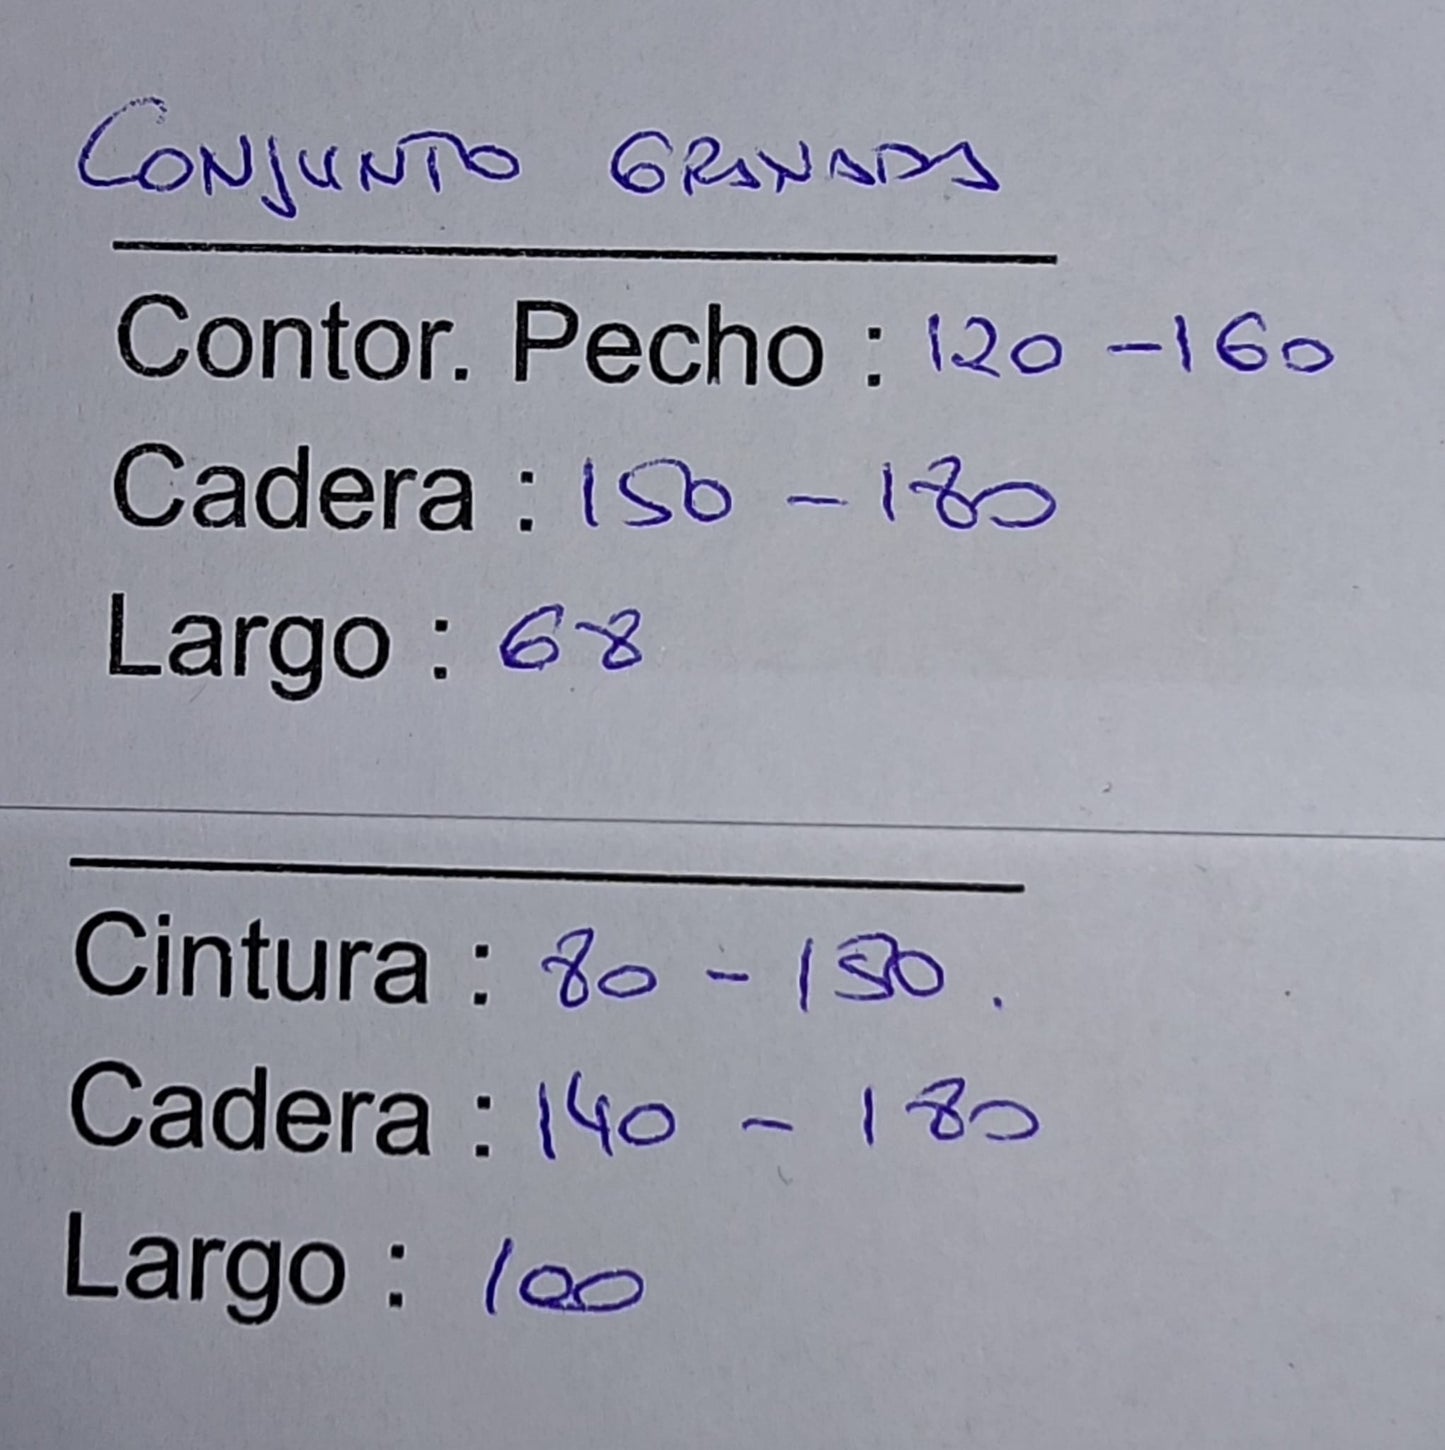 CONJUNTO GRANADA
Contor. Pecho : 120 - 160
Cadera : 150 - 180
Largo : 68
Cintura : 80 - 150.
Cadera : 140 - 180
Largo : 100